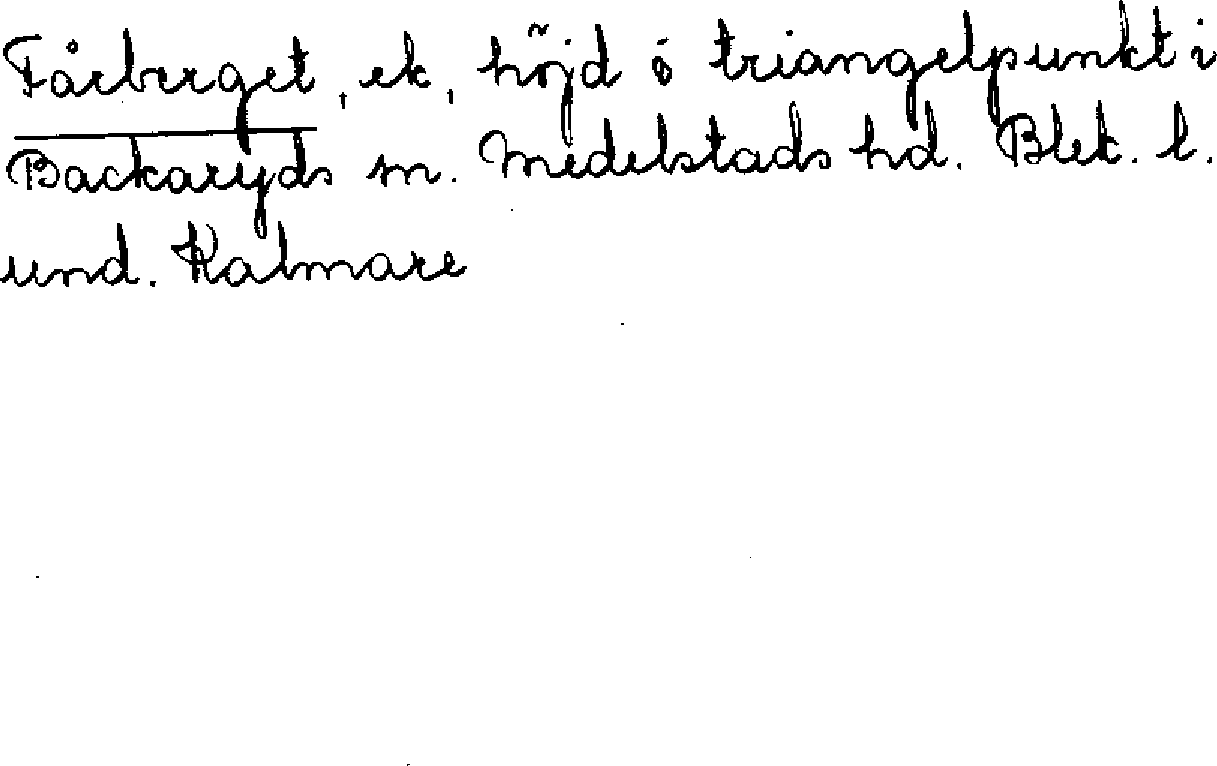 Fårberget, ek, höjd ó triangelpunkt i
Backaryds sn. Medelstads hd. Blek. l.
und. Kalmare